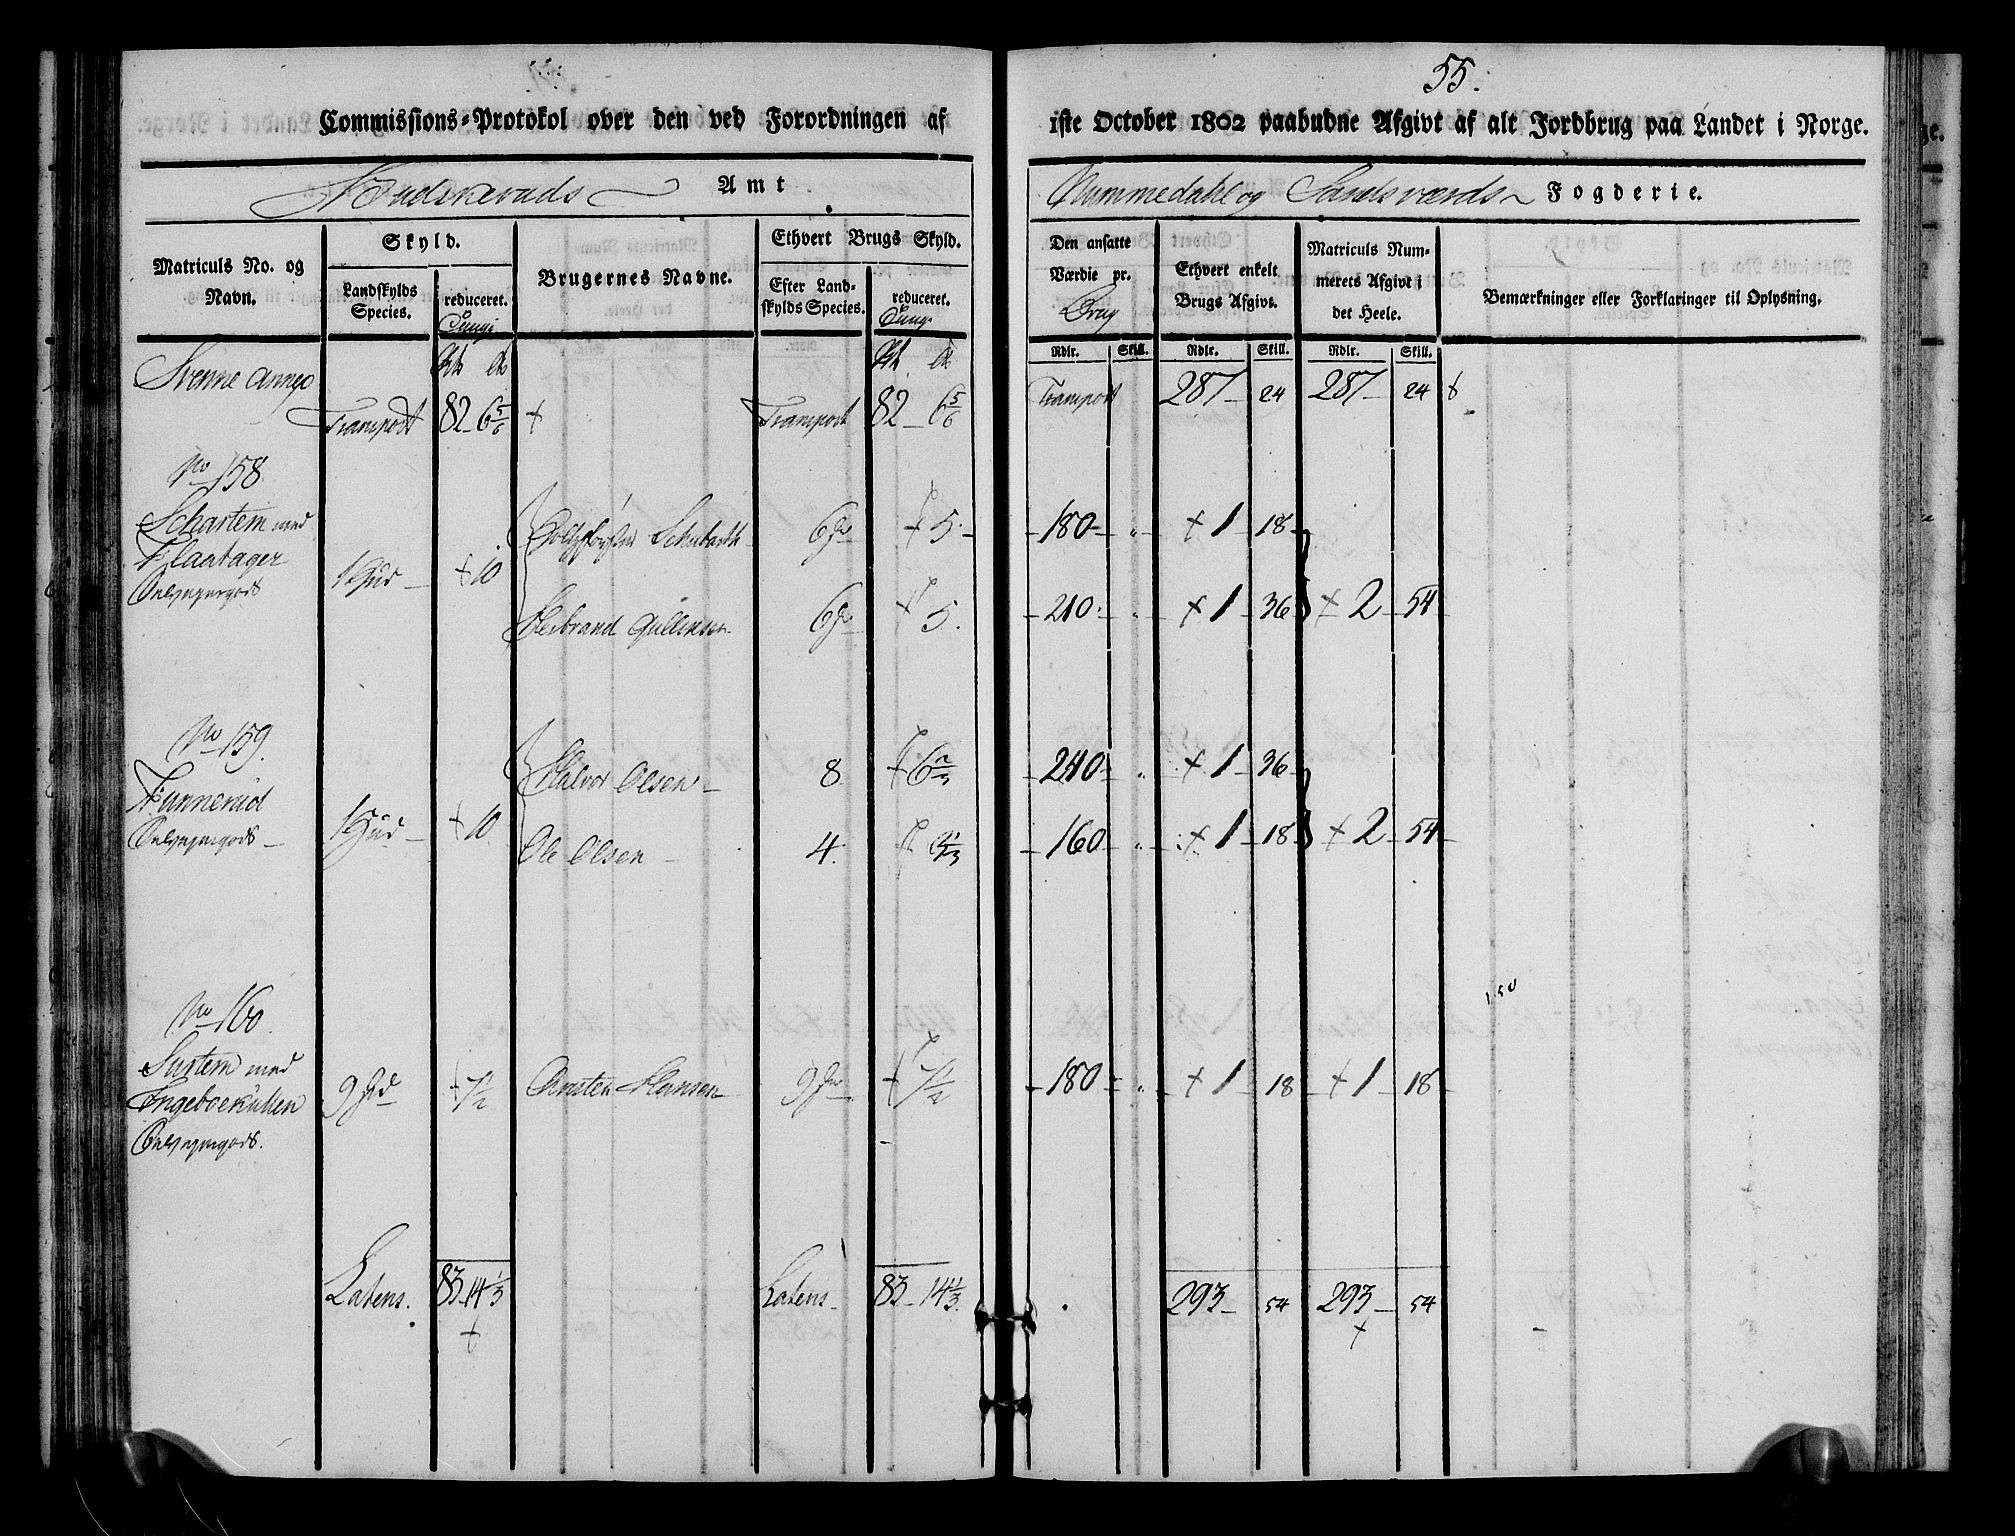 55.
Commissions-Protokol over den ved Forordningen af 1ste October 1802 paabudne Afgivt af alt Jordbrug paa Landet i Norge.
Budskeruds Amt
Nummedahl og Sandsværds Fogderie.
Matriculs No. og Navn.
Skyld.
Landskylds Species.
reduceret. Tunge
Brugernes Navne.
Ethvert Brugs Skyld.
Efter Landskylds Species.
reduceret. Tunge
Den ansatte Værdie pr. Brug
Ethvert enkelt Brugs Afgivt.
Matriculs Nummerets Afgivt i det Heele.
Bemærkninger eller Forklaringer til Oplysning.
Rdlr. Skill. Rdlr. Skill. Rdlr. Skill.
Svenne Annex
Transport 82 - 6 5/6 + Transport 82 - 6 5/6 Transport 287 - 24 287 - 24 +
No 158
Schartem med
Flaatager
1 Hud - + 10
Schubarth 6 + 5 - 180 - „ - + 1 - 18
Herbrand Gullensen 6 + 5. - 210 - „ - + 1 - 36 + 2 - 54
No 159.
1 Hud - + 10
Halvor Olsen - 8 + 6 2/3 - 240 - „ - + 1 - 36
Ole Olsen - 4. 3 1/3 - 160 - „ - + 1 - 18 + 2 - 54
No 160.
Surtem med
9 + 7 1/2 Carsten Hansen 9 + 7 1/2 - 180 - „ - + 1 - 18 - + 1 - 18
Latens. 83 - 14 1/3 Latens - 83 - 14 1/3. 293 - 54 293 - 54
+ +